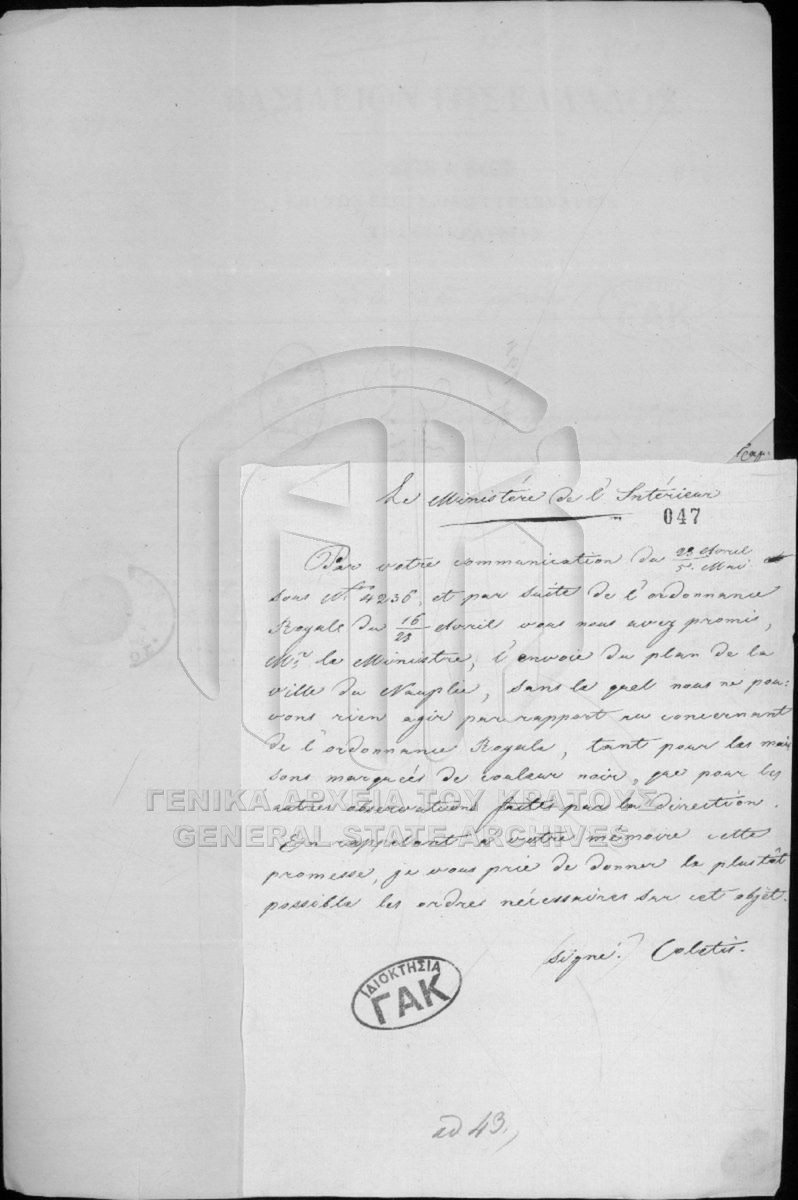 Cop.
Le Ministére de l'Intérieur
047
Par votre communication du 23 Avril / 5. Mai
sous No. 4236, et par suite de l'ordonnance
Royale du 16/28 Avril vous nous avez promis,
Mr. le Ministre, l'envoie du plan de la
ville du Nauplie, sans le quel nous ne pou-
vons rien agir par rapport au concernant
de l'ordonnance Royale, tant pour les mai
sons marquées de couleur noir, que pour les
autres observations faites par la direction.
En rappelant à votre mémoire cette
promesse, je vous prie de donner le plustôt
possible les ordres nécessaires sur cet objet.
signé. Coletis.
ΓΕΝΙΚΑ ΑΡΧΕΙΑ ΤΟΥ ΚΡΑΤΟΥΣ
GENERAL STATE ARCHIVES
ΙΔΙΟΚΤΗΣΙΑ
ΓΑΚ
ad 43.